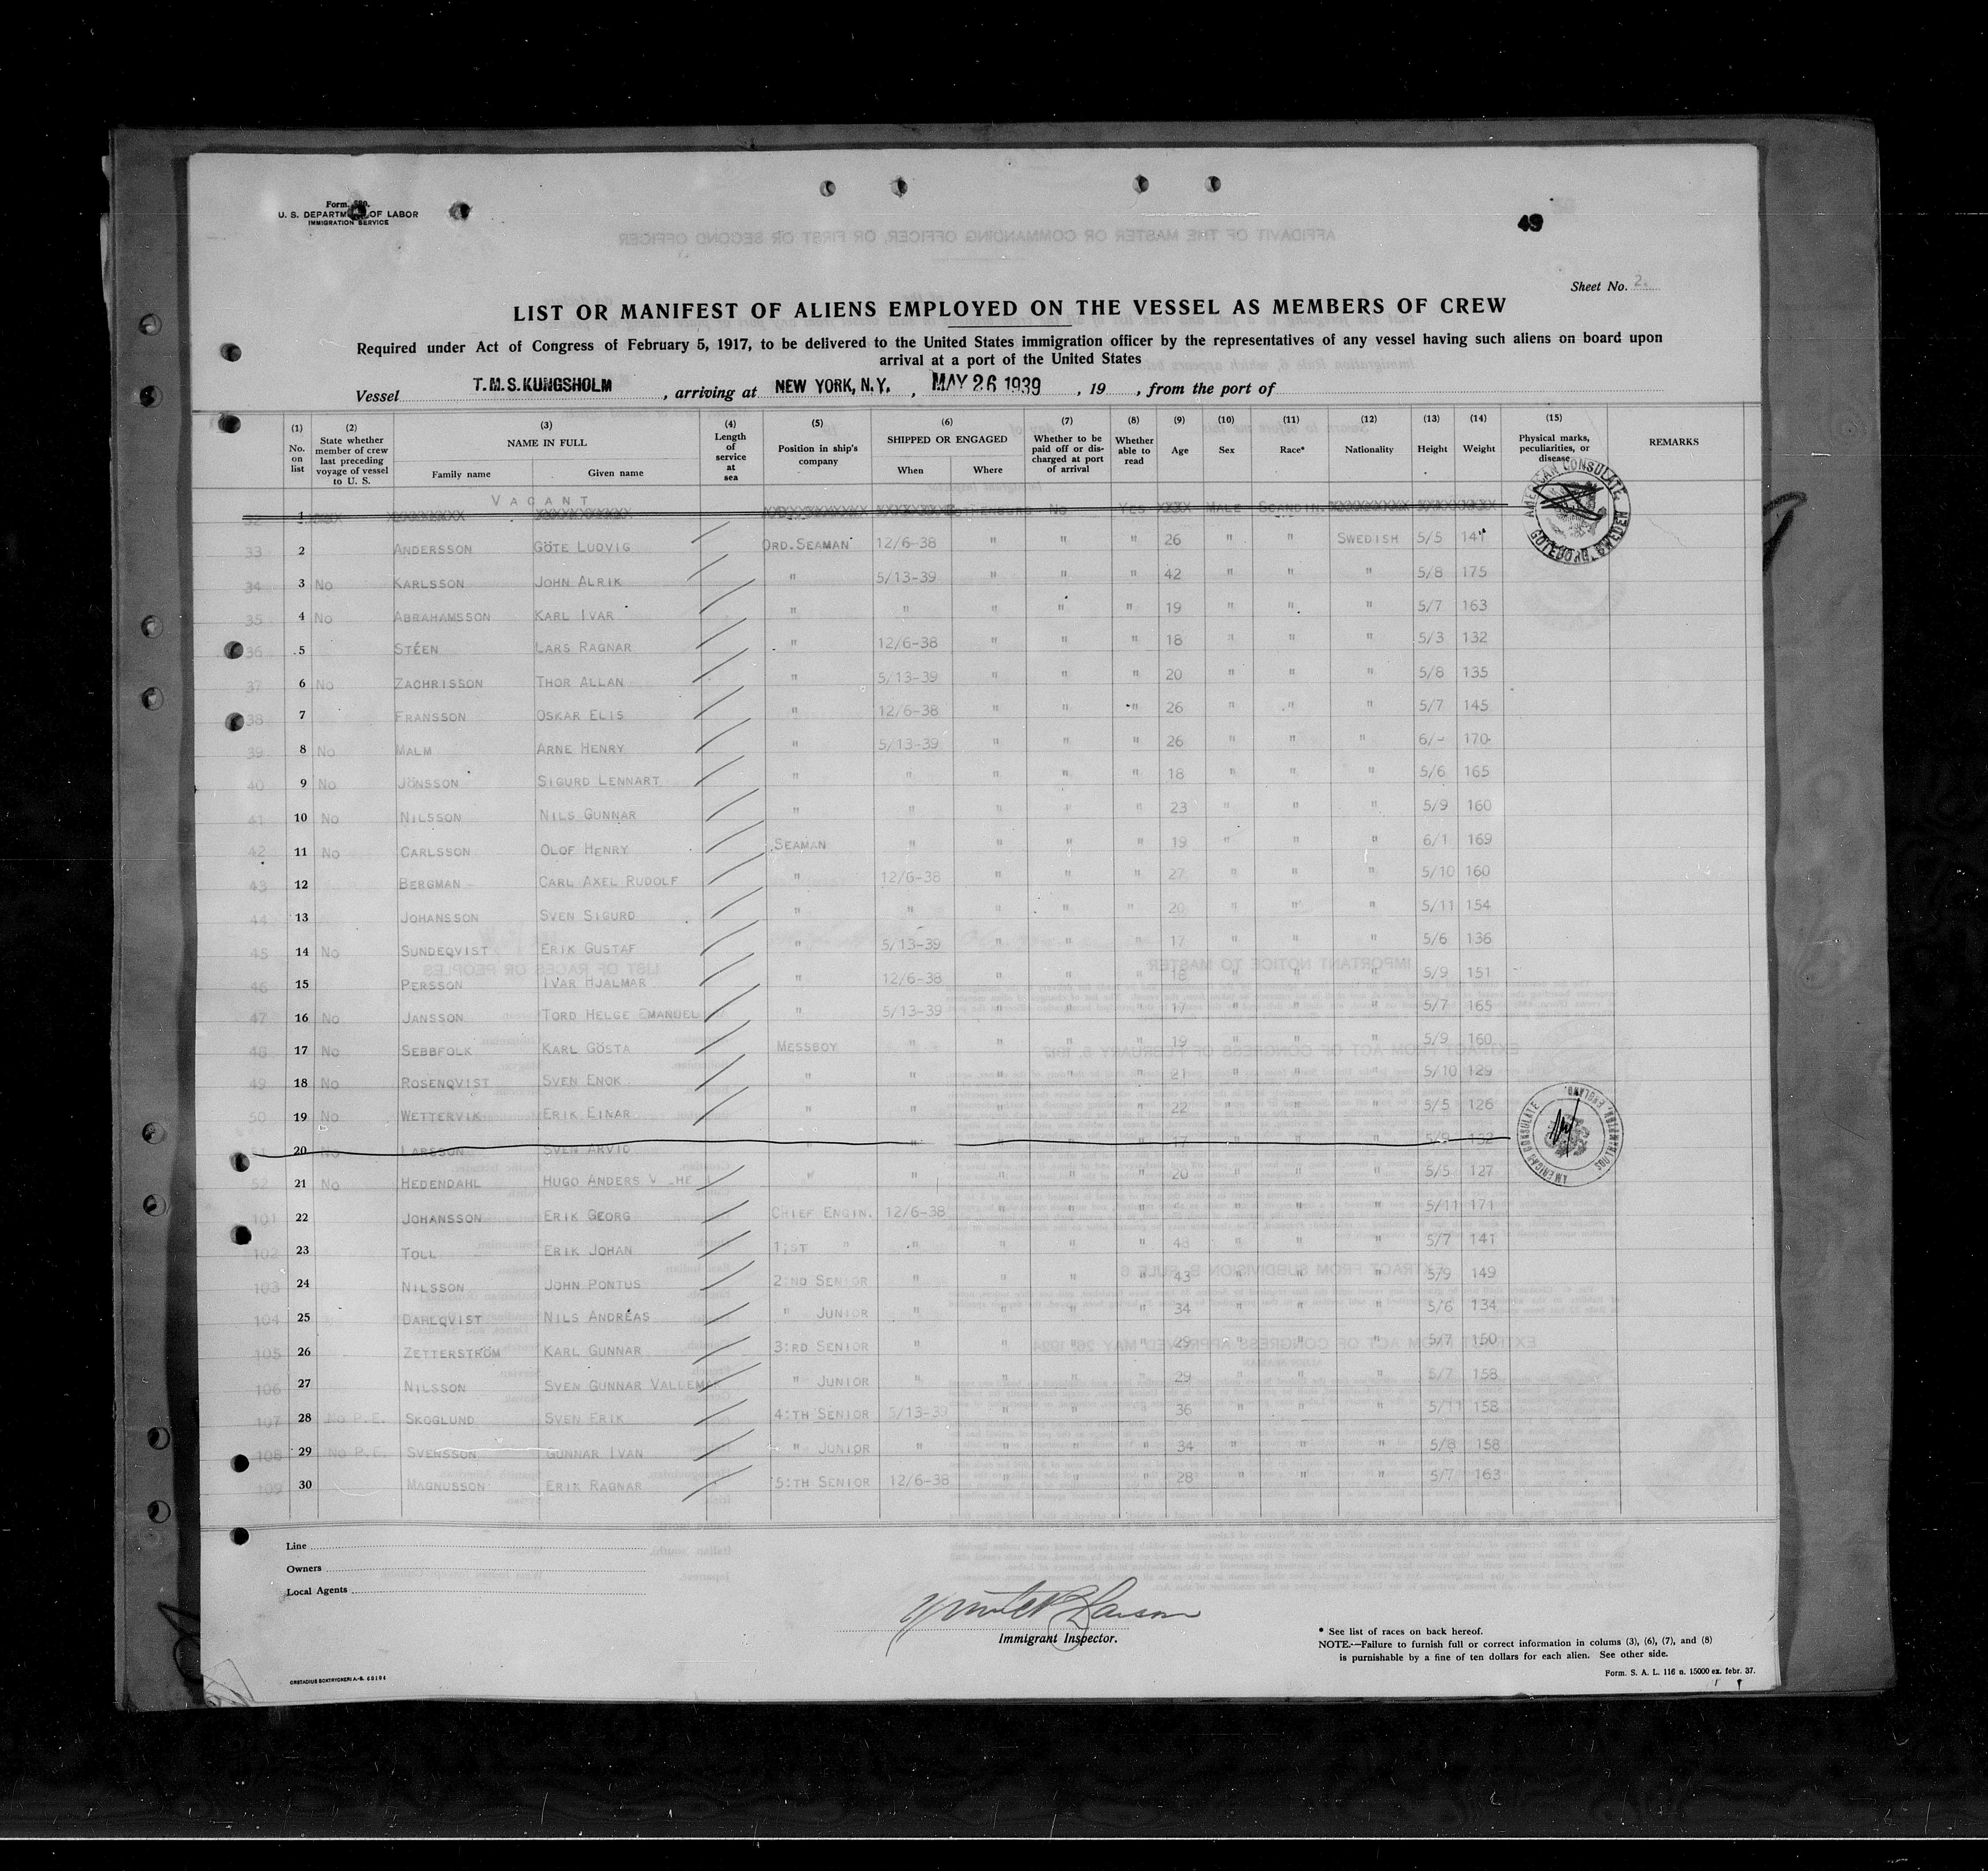 Form 680.
U. S. DEPARTMENT OF LABOR
IMMIGRATION SERVICE
49
Sheet No. 2.
LIST OR MANIFEST OF ALIENS EMPLOYED ON THE VESSEL AS MEMBERS OF CREW
Required under Act of Congress of February 5, 1917, to be delivered to the United States immigration officer by the representatives of any vessel having such aliens on board upon
arrival at a port of the United States
Vessel T.M.S.KUNGSHOLM, arriving at NEW YORK, N.Y., MAY 26 1939, 19 , from the port of
(1) No. on list (2) State whether member of crew last preceding voyage of vessel to U. S. (3) NAME IN FULL Family name Given name (4) Length of service at sea (5) Position in ship's company (6) SHIPPED OR ENGAGED When Where (7) Whether to be paid off or discharged at port of arrival (8) Whether able to read (9) Age (10) Sex (11) Race* (12) Nationality (13) Height (14) Weight (15) Physical marks, peculiarities, or disease REMARKS
VACANT
32 1 No Yes MALE SCANDIN.
33 2 ANDERSSON GÖTE LUDVIG ORD.SEAMAN 12/6-38 " " " 26 " " SWEDISH 5/5 141
34 3 No KARLSSON JOHN ALRIK " 5/13-39 " " " 42 " " " 5/8 175
35 4 No ABRAHAMSSON KARL IVAR " " " " " 19 " " " 5/7 163
36 5 STÉEN LARS RAGNAR " 12/6-38 " " " 18 " " " 5/3 132
37 6 No ZACHRISSON THOR ALLAN " 5/13-39 " " " 20 " " " 5/8 135
38 7 FRANSSON OSKAR ELIS " 12/6-38 " " " 26 " " " 5/7 145
39 8 No MALM ARNE HENRY " 5/13-39 " " " 26 " " " 6/- 170
40 9 No JÖNSSON SIGURD LENNART " " " " " 18 " " " 5/6 165
41 10 No NILSSON NILS GUNNAR " " " " " 23 " " " 5/9 160
42 11 No CARLSSON OLOF HENRY SEAMAN " " " " 19 " " " 6/1 169
43 12 BERGMAN CARL AXEL RUDOLF " 12/6-38 " " " 27 " " " 5/10 160
44 13 JOHANSSON SVEN SIGURD " " " " " 20 " " " 5/11 154
45 14 No SUNDEQVIST ERIK GUSTAF " 5/13-39 " " " 17 " " " 5/6 136
46 15 PERSSON IVAR HJALMAR " 12/6-38 " " " 18 " " " 5/9 151
47 16 No JANSSON TORD HELGE EMANUEL " 5/13-39 " " " 17 " " " 5/7 165
48 17 No SEBBFOLK KARL GÖSTA MESSBOY " " " " 19 " " " 5/9 160
49 18 No ROSENQVIST SVEN ENOK " " " " " 21 " " " 5/10 129
50 19 No WETTERVIK ERIK EINAR " " " " " 22 " " " 5/5 126
51 20 No LARSSON SVEN ARVID " " " " " 17 " " " 5/9 132
52 21 No HEDENDAHL HUGO ANDERS " " " " " 20 " " " 5/5 127
101 22 JOHANSSON ERIK GEORG CHIEF ENGIN. 12/6-38 " " " " " " 5/11 171
102 23 TOLL ERIK JOHAN 1:ST " " " " " 48 " " " 5/7 141
103 24 NILSSON JOHN PONTUS 2:ND SENIOR " " " " 43 " " " 5/9 149
104 25 DAHLQVIST NILS ANDRÉAS " JUNIOR " " " " 34 " " " 5/6 134
105 26 ZETTERSTRÖM KARL GUNNAR 3:RD SENIOR " " " " 29 " " " 5/7 150
106 27 NILSSON SVEN GUNNAR VALDEMAR " JUNIOR " " " " 29 " " " 5/7 158
107 28 No P.E. SKOGLUND SVEN ERIK 4:TH SENIOR 5/13-39 " " " 36 " " " 5/11 158
108 29 No P.E. SVENSSON GUNNAR IVAN " JUNIOR " " " " 34 " " " 5/8 158
109 30 MAGNUSSON ERIK RAGNAR 5:TH SENIOR 12/6-38 " " " 28 " " " 5/7 163
AMERICAN CONSULATE GOTEBORG, SWEDEN
AMERICAN CONSULATE SOUTHAMPTON, ENGLAND.
Line
Owners
Local Agents
Immigrant Inspector.
* See list of races on back hereof.
NOTE.—Failure to furnish full or correct information in colums (3), (6), (7), and (8)
is punishable by a fine of ten dollars for each alien. See other side.
Form. S. A. L. 116 n. 15000 ex. febr. 37.
ORSTADIUS BOKTRYCKERI A.-B. 60194